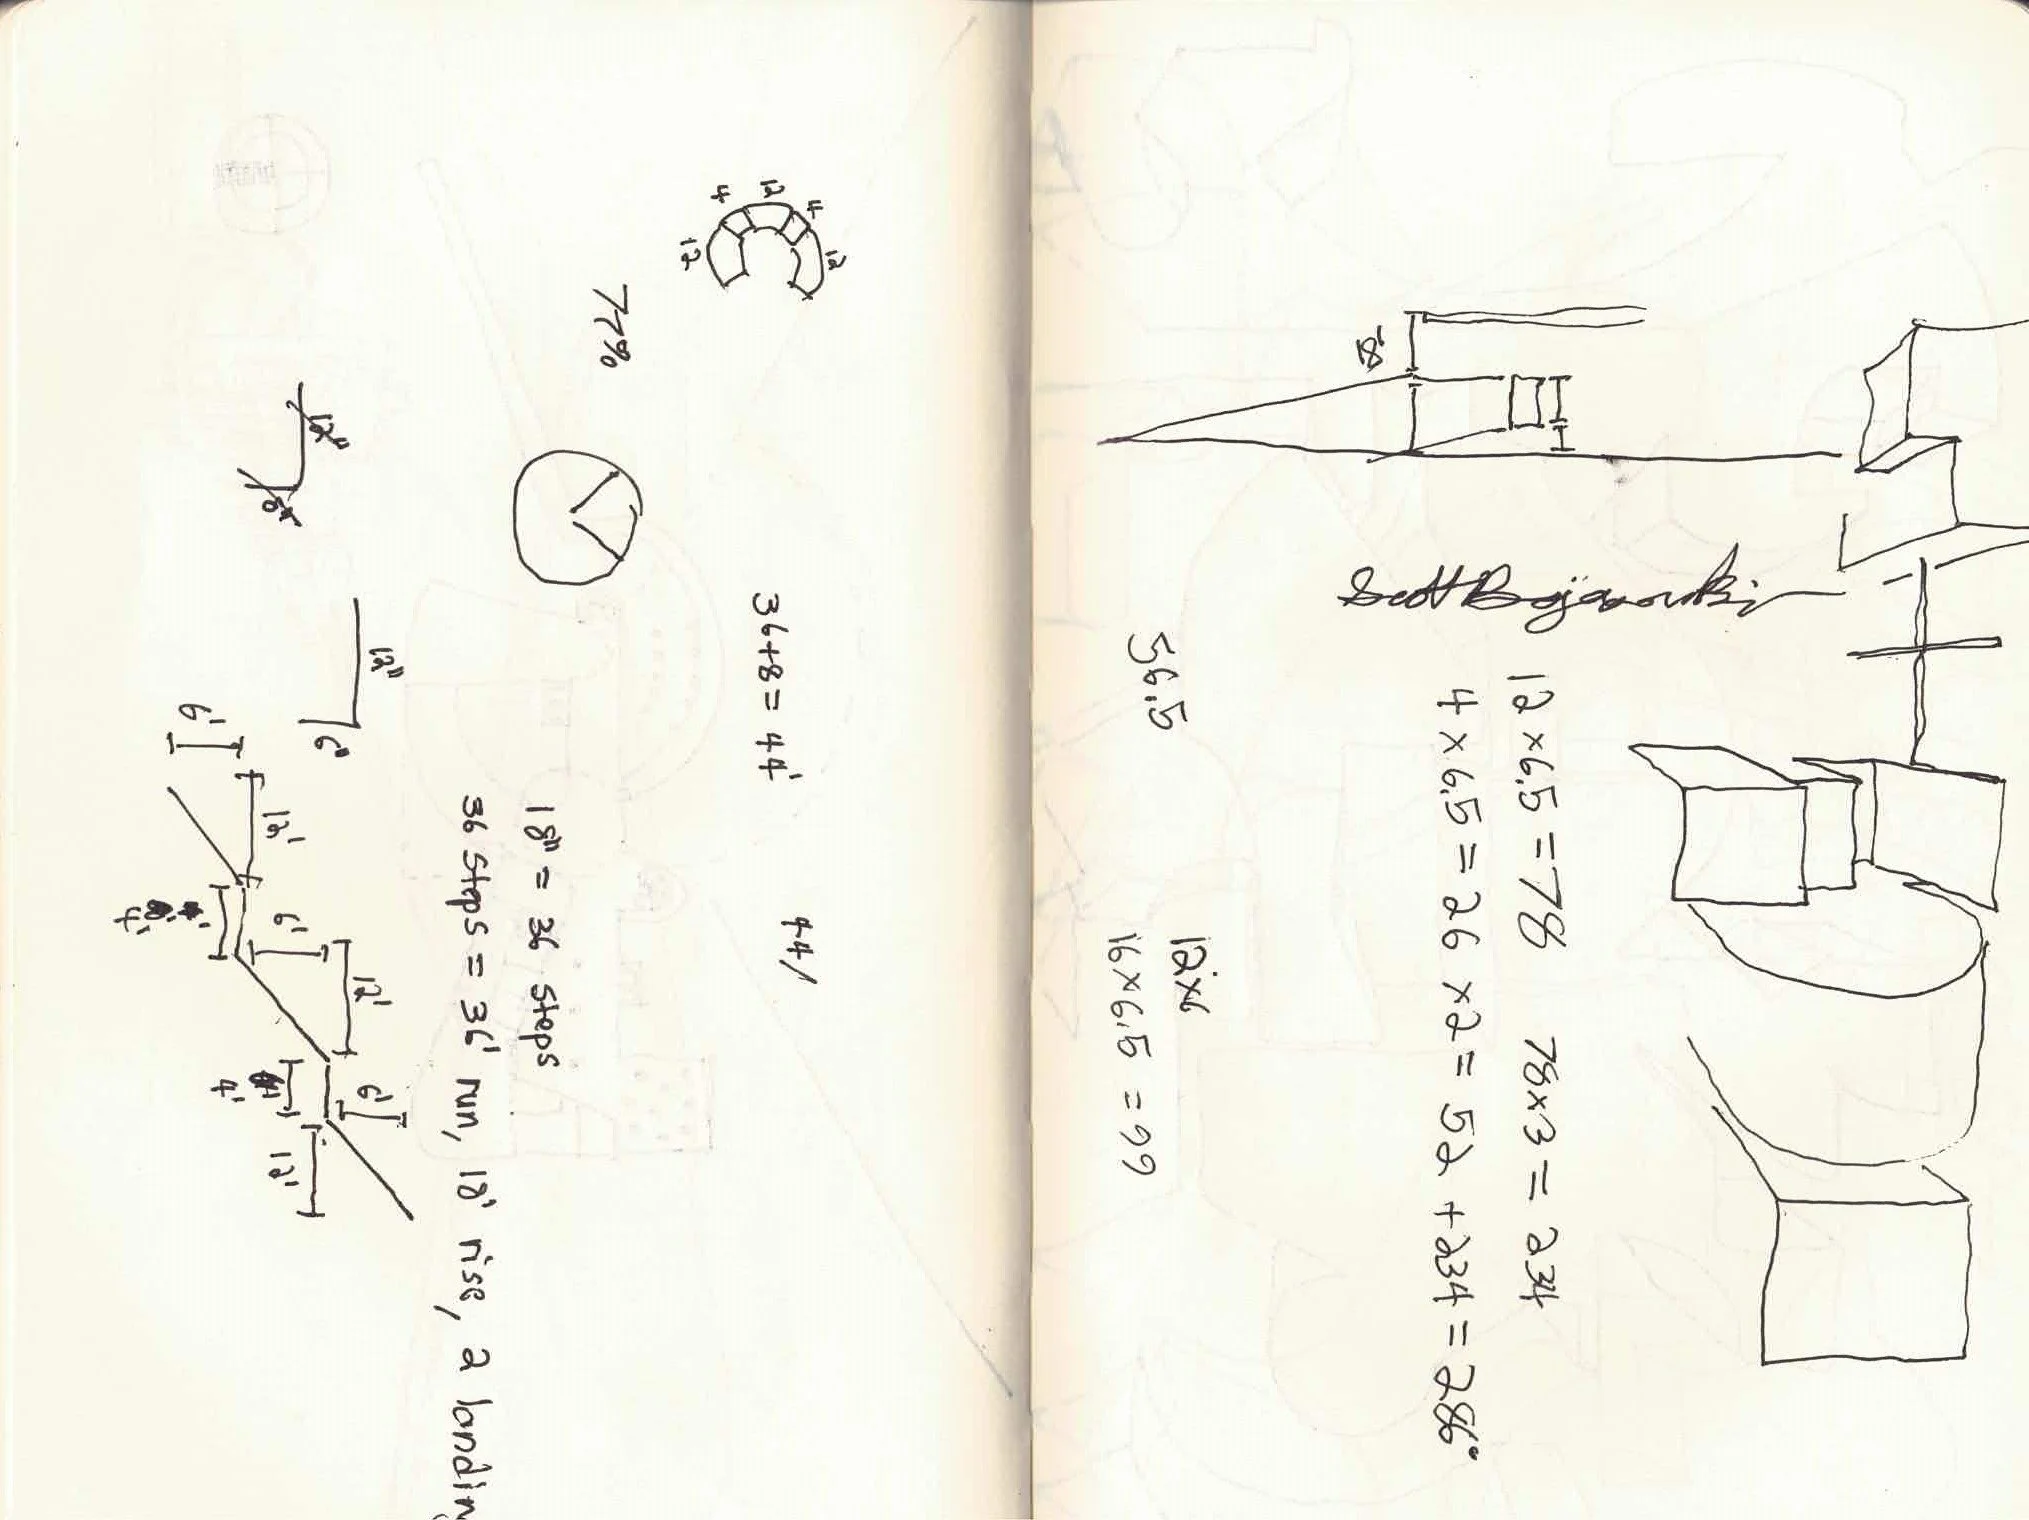 12×6.5 = 78   78×3 = 234
4×6.5 = 26 ×2 = 52 + 234 = 286°
Scott Bojanowski
18'
12×6
56.5
16×6.5 = 99
12
4
12
4
12
44'
36+8 = 44'
77%
18" = 36 steps
36 steps = 36' run, 18' rise, 2 landing
12"
12"
6"
6'
12'
4'
6'
12'
4'
6'
12'